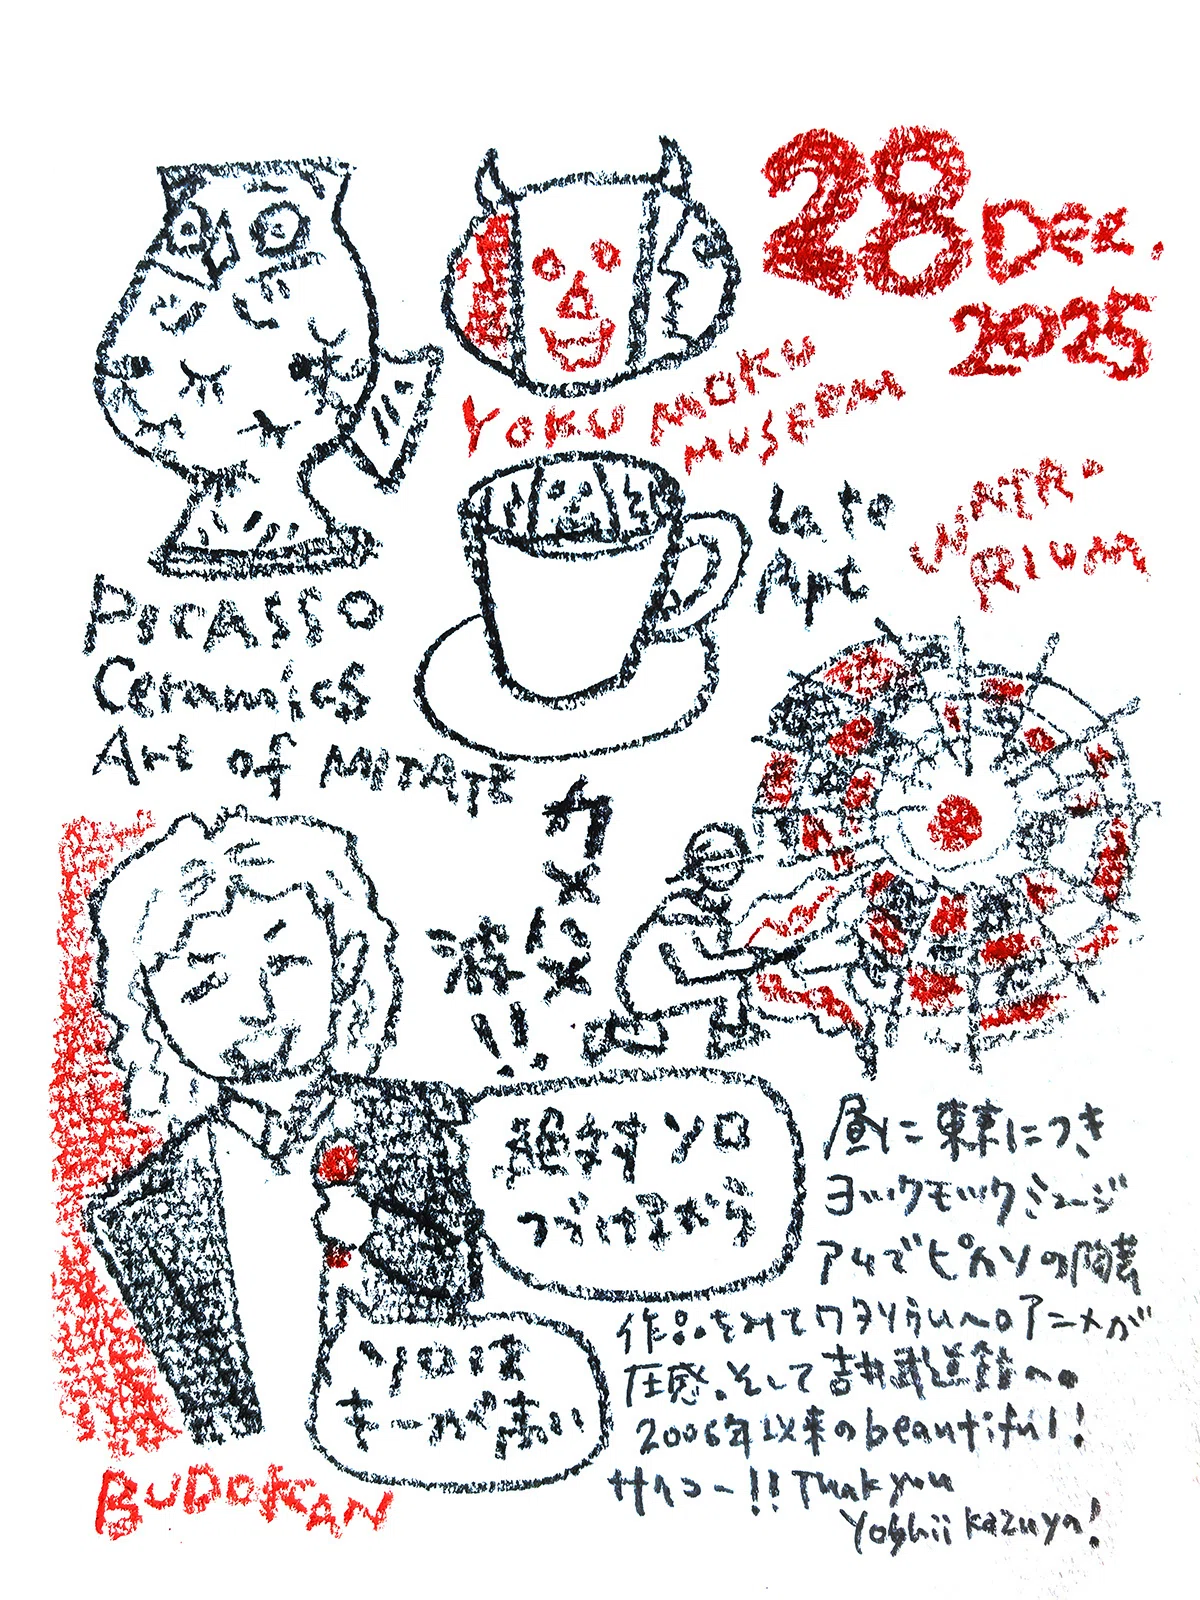 28 Dec.
2025
YOKU MOKU
MUSEEM
Late
Art
WATA-
RIUM
PICASSO
Ceramics
Art of MITATE
絶対ソロ
つづけるから
ソロは
キーが高い
昼に東京につき
ヨックモックミュージ
アムでピカソの陶芸
作品をみてワタリウムへ。アニメが
圧感。そして吉井武道館へ。
2006年以来のbeautiful!
サイコー!! Thank you
Yoshii Kazuya!
BUDOKAN